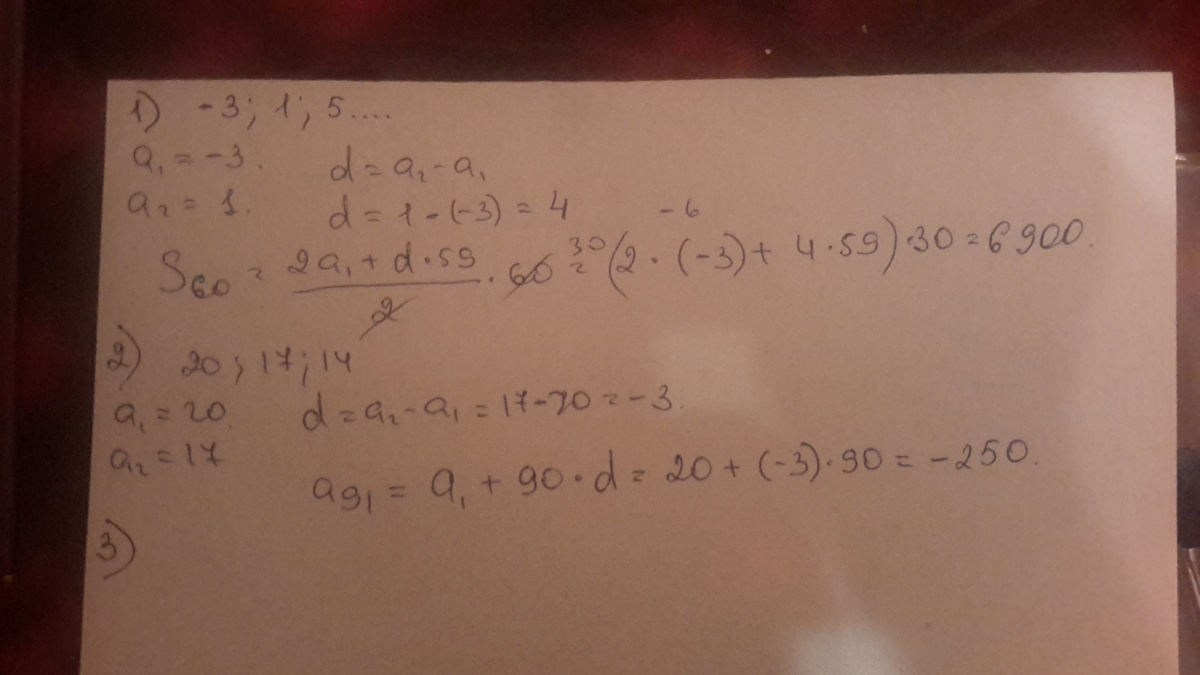 1) -3; 1; 5....
a₁ = -3. d = a₂ - a₁
a₂ = 1. d = 1 - (-3) = 4 -6
S₆₀ = (2a₁ + d·59)/2 · 60 30 = (2 · (-3) + 4·59)·30 = 6900.
2) 20; 17; 14
a₁ = 20. d = a₂ - a₁ = 17 - 20 = -3.
a₂ = 17
a₉₁ = a₁ + 90·d = 20 + (-3)·90 = -250.
3)